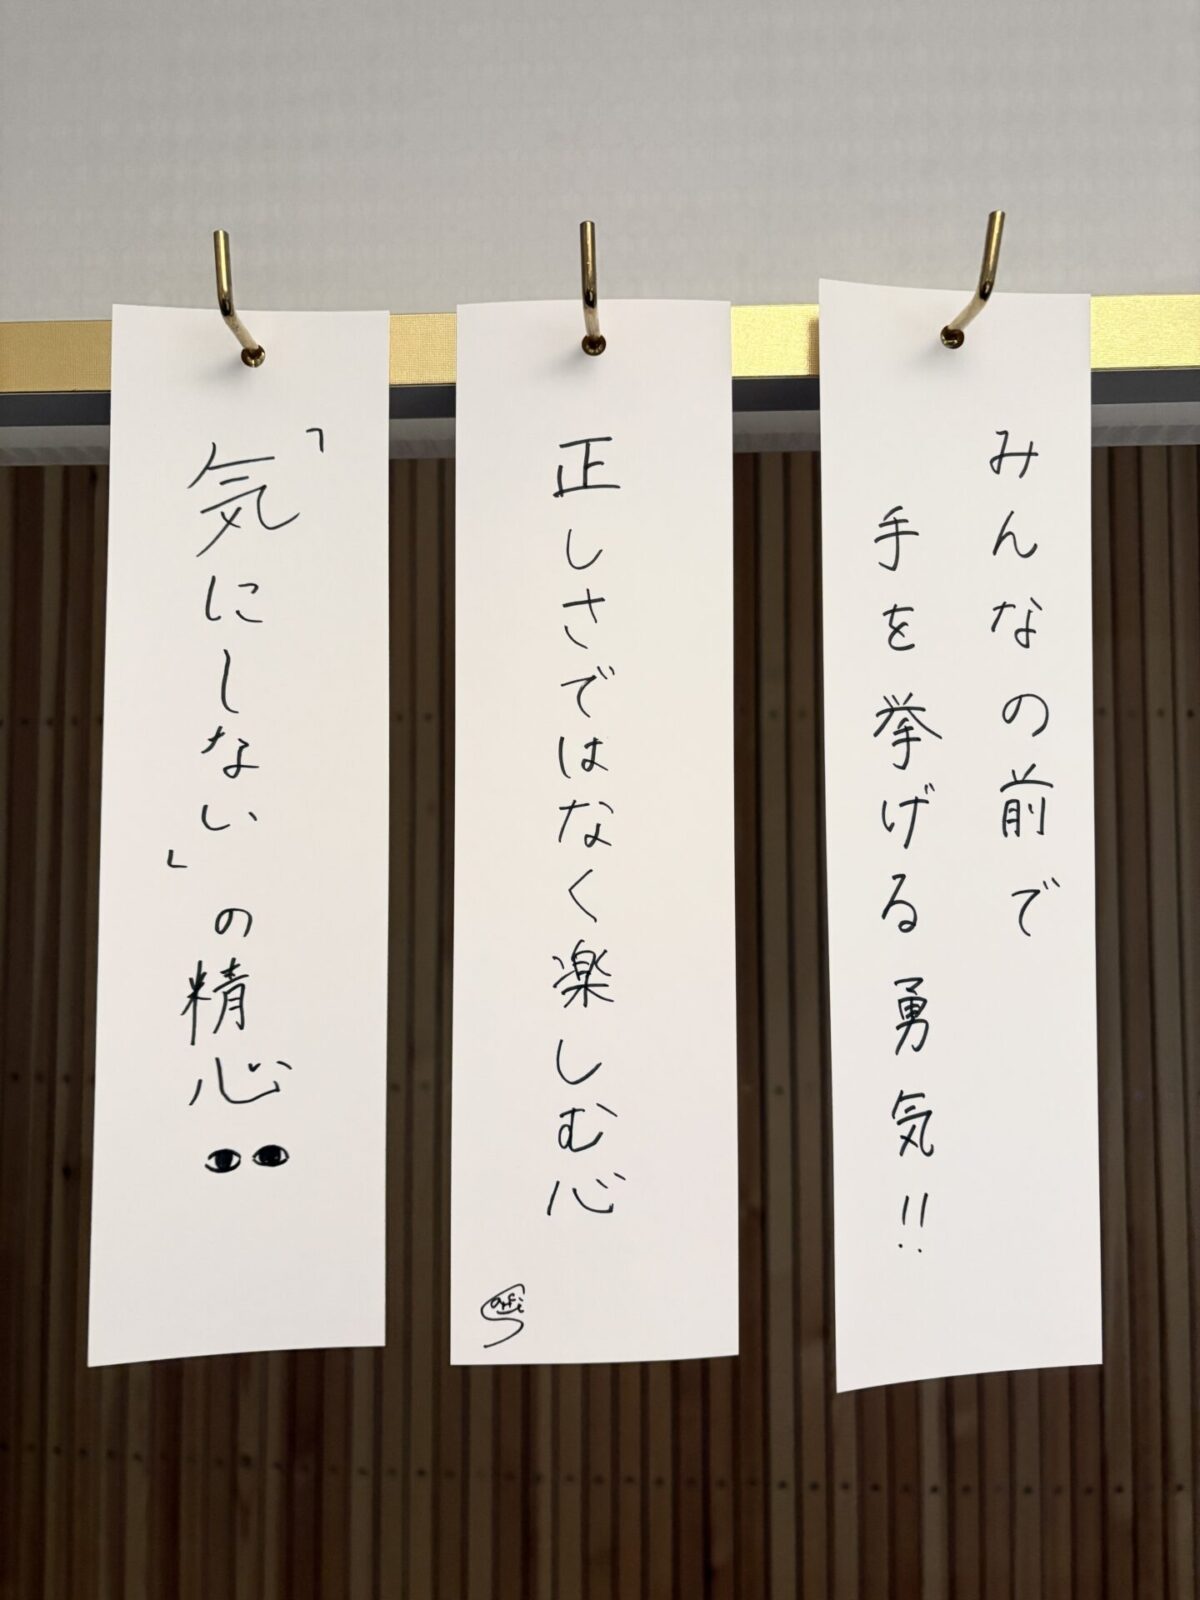 みんなの前で
手を挙げる勇気!!
正しさではなく楽しむ心
「気にしない」の精心